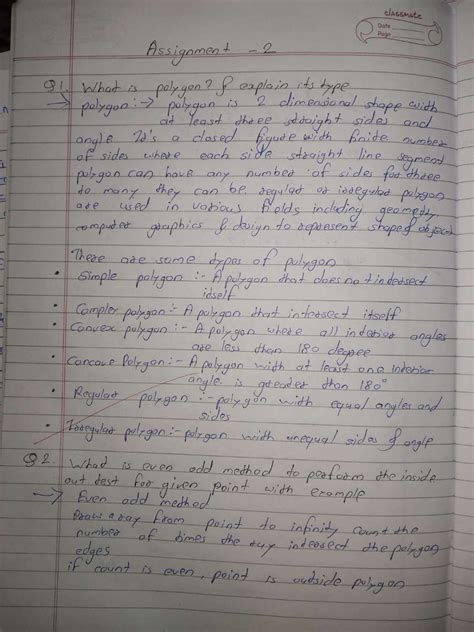 classmate
Date
Page
Assignment - 2
Q1. What is polygon? & explain its type
→ polygon :→ polygon is 2 dimensional shape with
at least three straight sides and
angle It's a closed figure with finite number
of sides where each side straight line segment
polygon can have any number of sides for three
to many they can be regular or irregular polygon
are used in various fields including geometry
computer graphics & design to represent shape & object
There are some types of polygon
• Simple polygon :- A polygon that does not intersect
itself
• Complex polygon :- A polygon that intersect itself
• Convex polygon :- A polygon where all interior angles
are less than 180 degree
• Concave Polygon :- A polygon with at least one interior
angle is greater than 180°
• Regular polygon :- polygon with equal angles and
sides
• Irregular polygon :- polygon with unequal sides & angle
Q2. What is even odd method to perform the inside
out test for given point with example
→ Even odd method
Draw a ray from point to infinity count the
number of times the ray intersect the polygon
edges
if count is even, point is outside polygon